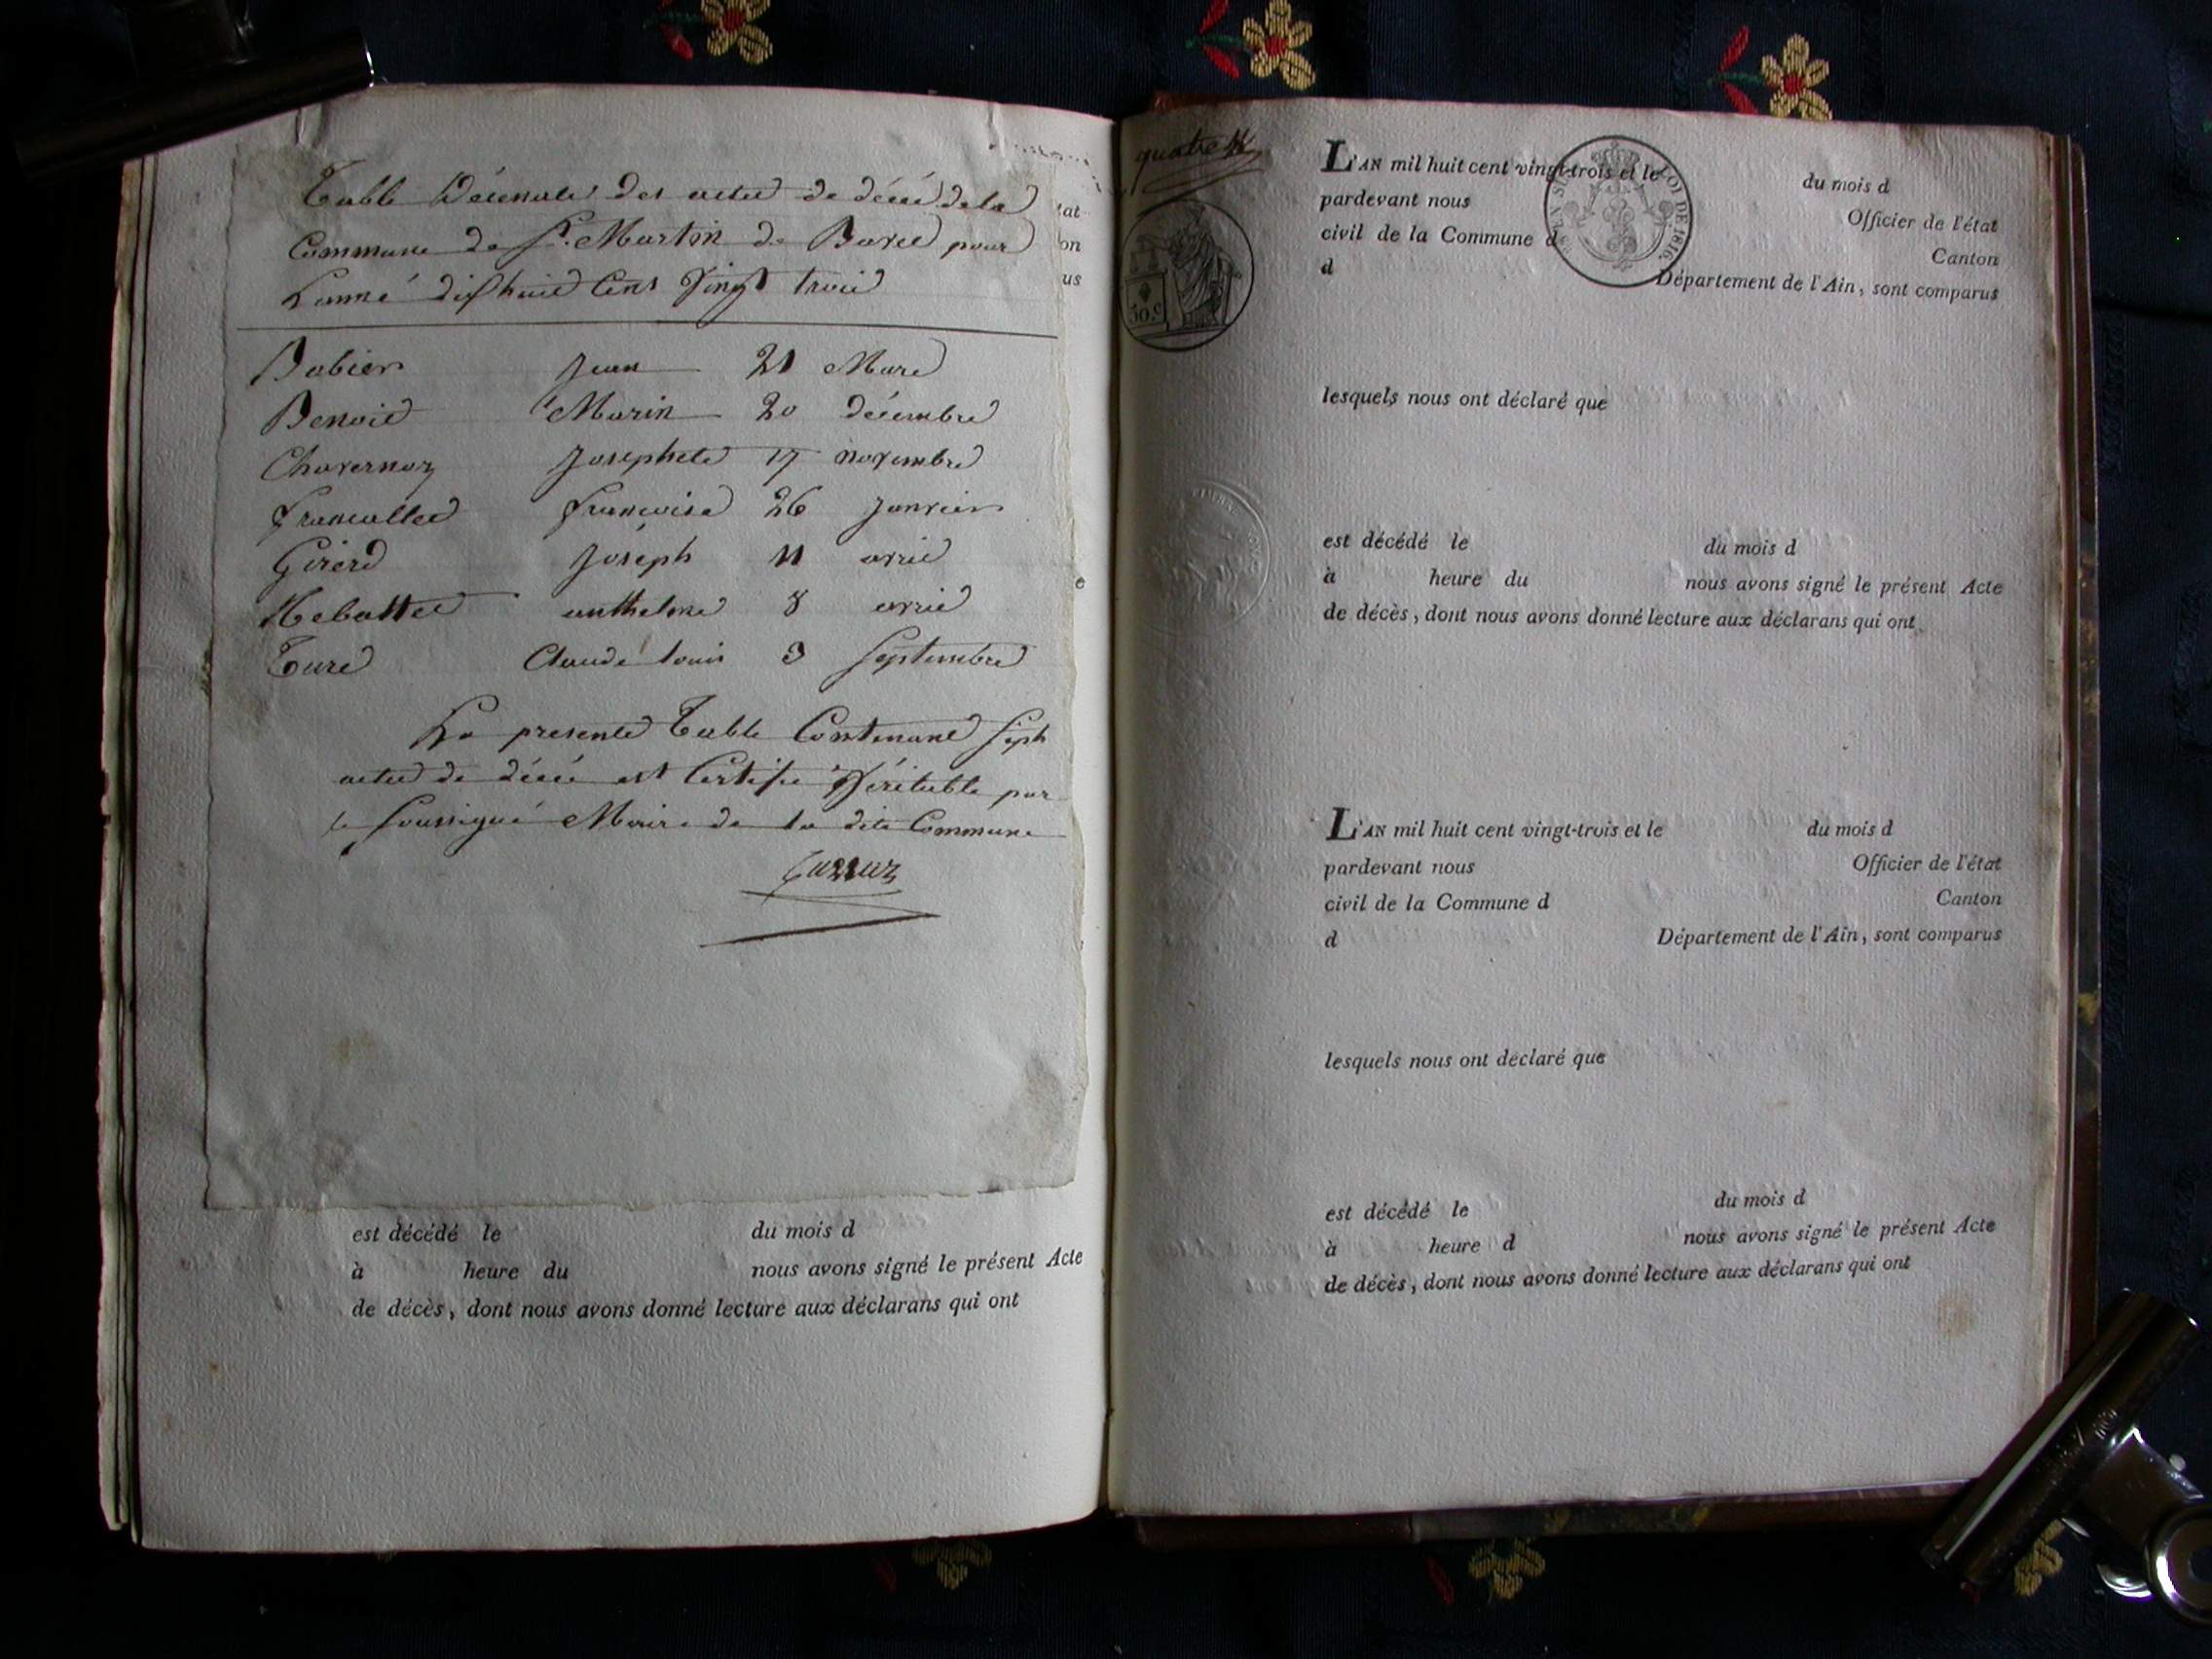 Table Décenale des actes de décès de la
Commune de St. Martin de Bavel pour
Lanné dixhuit Cent Vingt trois
at
on
us
Babier Jean 21 Mars
Benoit Marin 20 décembre
Chavernoz Josephete 17 novembre
françoise 26 janvier
Girerd Joseph 11 avril
anthelme 8 avril
Claude louis 3 Septembre
La presente Table Contenant Sept
actes de décès est Certifié Véritable par
le Soussigné Maire de la dite Commune
est décédé le du mois d
à heure du nous avons signé le présent Acte
de décès, dont nous avons donné lecture aux déclarans qui ont
quatre
30.c
LOI DE 1816.
L'AN mil huit cent vingt-trois et le du mois d
pardevant nous Officier de l'état
civil de la Commune d Canton
d Département de l'Ain, sont comparus
lesquels nous ont déclaré que
est décédé le du mois d
à heure du nous avons signé le présent Acte
de décès, dont nous avons donné lecture aux déclarans qui ont
L'AN mil huit cent vingt-trois et le du mois d
pardevant nous Officier de l'état
civil de la Commune d Canton
d Département de l'Ain, sont comparus
lesquels nous ont declaré que
est décédé le du mois d
à heure d nous avons signé le présent Acte
de décès, dont nous avons donné lecture aux déclarans qui ont